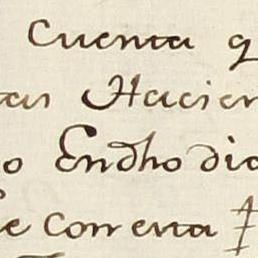 Cuenta q
tas Hacien
o Endho dia
e Correria